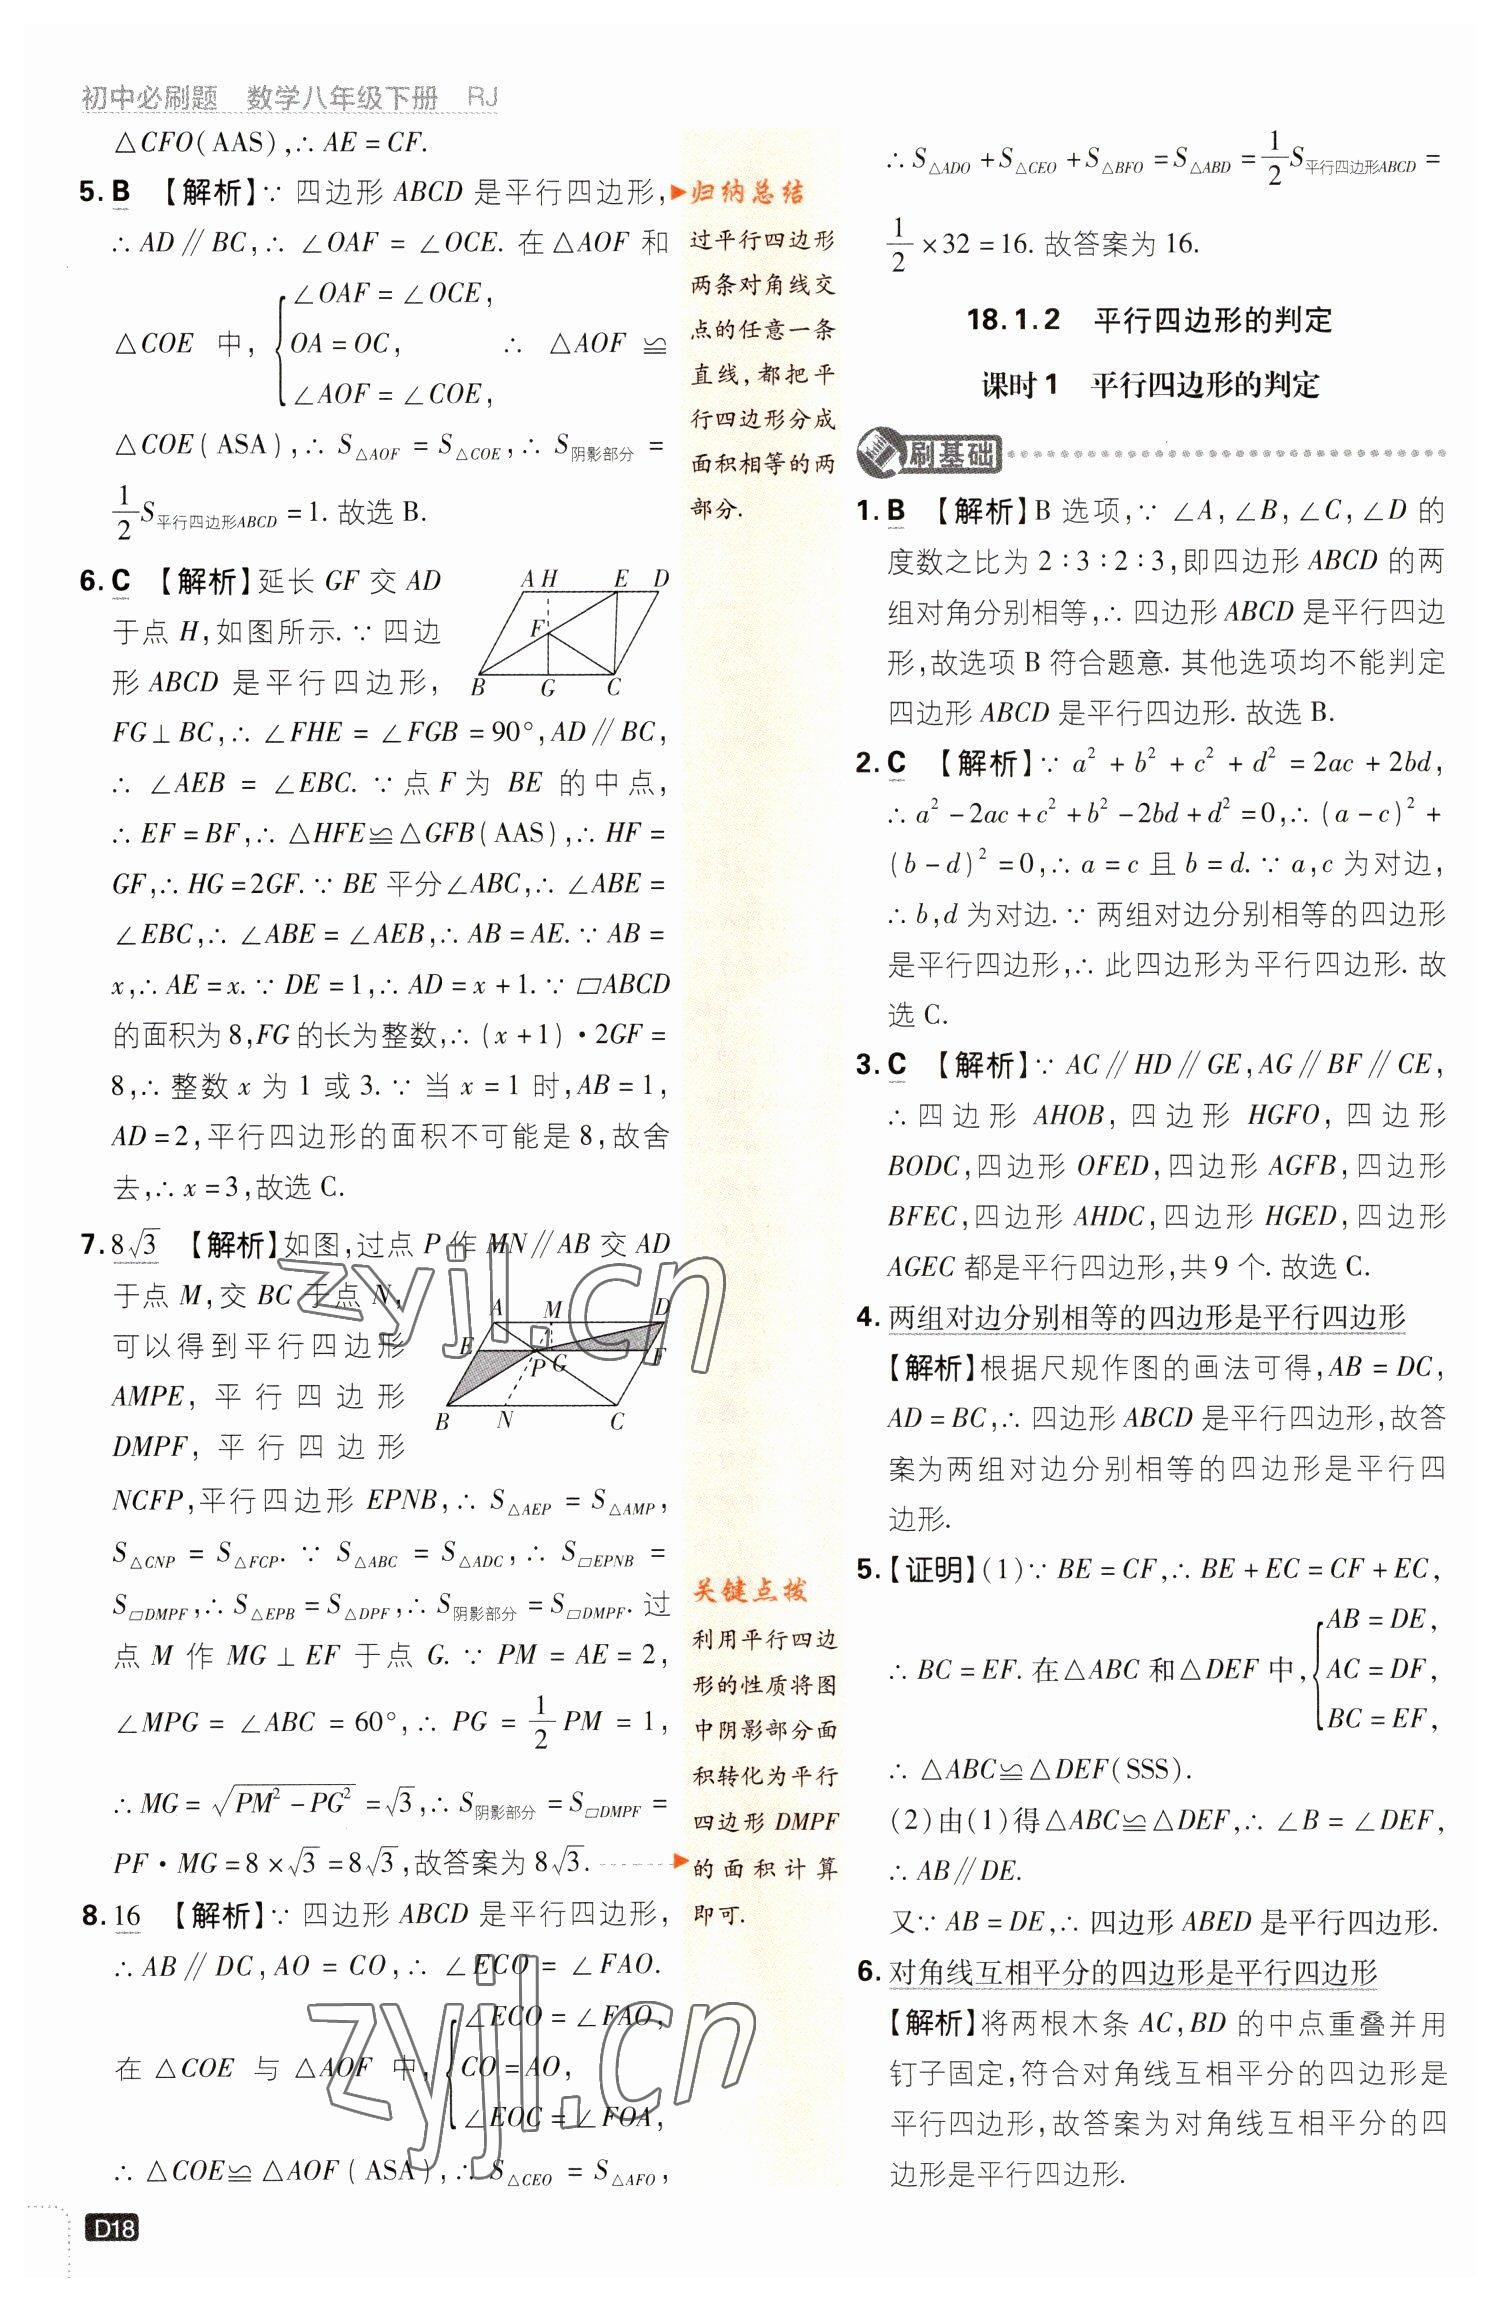 初中必刷题 数学八年级下册 RJ
△CFO(AAS),∴ AE=CF.
5. B 【解析】∵ 四边形 ABCD 是平行四边形,
∴ AD∥BC,∴ ∠OAF=∠OCE. 在△AOF 和
△COE 中, { ∠OAF=∠OCE,
OA=OC,
∠AOF=∠COE,
∴ △AOF≌
△COE(ASA),∴ S△AOF=S△COE,∴ S阴影部分=
1/2 S平行四边形ABCD=1. 故选 B.
6. C 【解析】延长 GF 交 AD
于点 H,如图所示. ∵ 四边
形 ABCD 是平行四边形,
A H E D
F
B G C
FG⊥BC,∴ ∠FHE=∠FGB=90°,AD∥BC,
∴ ∠AEB=∠EBC. ∵ 点 F 为 BE 的中点,
∴ EF=BF,∴ △HFE≌△GFB(AAS),∴ HF=
GF,∴ HG=2GF. ∵ BE 平分∠ABC,∴ ∠ABE=
∠EBC,∴ ∠ABE=∠AEB,∴ AB=AE. ∵ AB=
x,∴ AE=x. ∵ DE=1,∴ AD=x+1. ∵ ▱ABCD
的面积为 8,FG 的长为整数,∴ (x+1)·2GF=
8,∴ 整数 x 为 1 或 3. ∵ 当 x=1 时,AB=1,
AD=2,平行四边形的面积不可能是 8,故舍
去,∴ x=3,故选 C.
7. 8√3 【解析】如图,过点 P 作 MN∥AB 交 AD
于点 M,交 BC 于点 N,
可以得到平行四边形
AMPE,平行四边形
DMPF,平行四边形
A M D
E P G F
B N C
NCFP,平行四边形 EPNB,∴ S△AEP=S△AMP,
S△CNP=S△FCP. ∵ S△ABC=S△ADC,∴ S▱EPNB=
S▱DMPF,∴ S△EPB=S△DPF,∴ S阴影部分=S▱DMPF. 过
点 M 作 MG⊥EF 于点 G. ∵ PM=AE=2,
∠MPG=∠ABC=60°,∴ PG=1/2 PM=1,
∴ MG=√(PM²-PG²)=√3,∴ S阴影部分=S▱DMPF=
PF·MG=8×√3=8√3,故答案为 8√3.
8. 16 【解析】∵ 四边形 ABCD 是平行四边形,
∴ AB∥DC,AO=CO,∴ ∠ECO=∠FAO.
在△COE 与△AOF 中, { ∠ECO=∠FAO,
CO=AO,
∠EOC=∠FOA,
∴ △COE≌△AOF(ASA),∴ S△CEO=S△AFO,
D18
归纳总结
过平行四边形
两条对角线交
点的任意一条
直线,都把平
行四边形分成
面积相等的两
部分.
关键点拨
利用平行四边
形的性质将图
中阴影部分面
积转化为平行
四边形 DMPF
的面积计算
即可.
∴ S△ADO+S△CEO+S△BFO=S△ABD=1/2 S平行四边形ABCD=
1/2×32=16. 故答案为 16.
18.1.2 平行四边形的判定
课时1 平行四边形的判定
刷基础
1. B 【解析】B 选项,∵ ∠A,∠B,∠C,∠D 的
度数之比为 2:3:2:3,即四边形 ABCD 的两
组对角分别相等,∴ 四边形 ABCD 是平行四边
形,故选项 B 符合题意. 其他选项均不能判定
四边形 ABCD 是平行四边形. 故选 B.
2. C 【解析】∵ a²+b²+c²+d²=2ac+2bd,
∴ a²-2ac+c²+b²-2bd+d²=0,∴ (a-c)²+
(b-d)²=0,∴ a=c 且 b=d. ∵ a,c 为对边,
∴ b,d 为对边. ∵ 两组对边分别相等的四边形
是平行四边形,∴ 此四边形为平行四边形. 故
选 C.
3. C 【解析】∵ AC∥HD∥GE,AG∥BF∥CE,
∴ 四边形 AHOB,四边形 HGFO,四边形
BODC,四边形 OFED,四边形 AGFB,四边形
BFEC,四边形 AHDC,四边形 HGED,四边形
AGEC 都是平行四边形,共 9 个. 故选 C.
4. 两组对边分别相等的四边形是平行四边形
【解析】根据尺规作图的画法可得,AB=DC,
AD=BC,∴ 四边形 ABCD 是平行四边形,故答
案为两组对边分别相等的四边形是平行四
边形.
5.【证明】(1)∵ BE=CF,∴ BE+EC=CF+EC,
∴ BC=EF. 在△ABC 和△DEF 中, { AB=DE,
AC=DF,
BC=EF,
∴ △ABC≌△DEF(SSS).
(2)由(1)得△ABC≌△DEF,∴ ∠B=∠DEF,
∴ AB∥DE.
又∵ AB=DE,∴ 四边形 ABED 是平行四边形.
6. 对角线互相平分的四边形是平行四边形
【解析】将两根木条 AC,BD 的中点重叠并用
钉子固定,符合对角线互相平分的四边形是
平行四边形,故答案为对角线互相平分的四
边形是平行四边形.
zyjl.cn
zyjl.cn